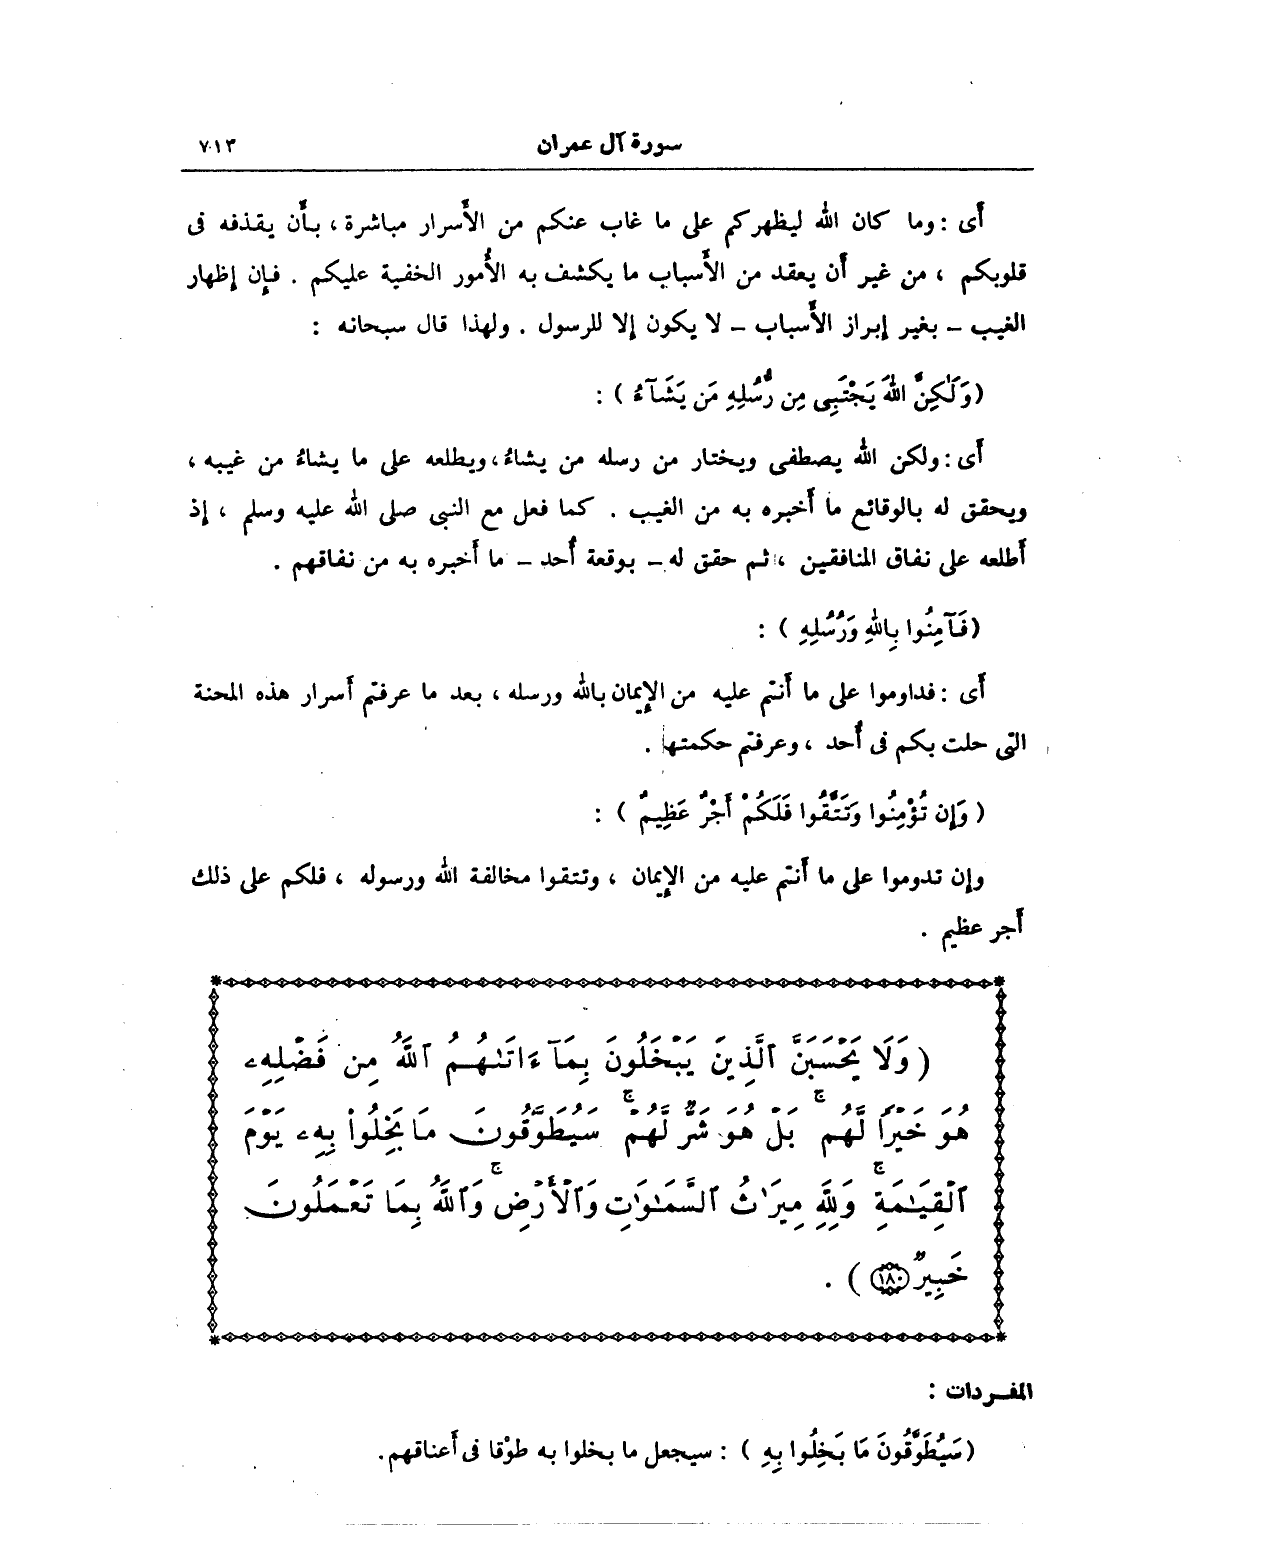 سورة آل عمران
٧٠١٣
أى : وما كان الله ليظهركم على ما غاب عنكم من الأسرار مباشرة ، بأن يقذفه فى
قلوبكم ، من غير أن يعقد من الأسباب ما يكشف به الأمور الخفية عليكم . فإن إظهار
الغيب – بغير إبراز الأسباب – لا يكون إلا للرسول . ولهذا قال سبحانه :
( وَلَٰكِنَّ اللهَ يَجْتَبِى مِن رُّسُلِهِ مَن يَشَآءُ ) :
أى : ولكن الله يصطفى ويختار من رسله من يشاءُ، ويطلعه على ما يشاءُ من غيبه ،
ويحقق له بالوقائع ما أخبره به من الغيب . كما فعل مع النبى صلى الله عليه وسلم ، إذ
أطلعه على نفاق المنافقين ، ثم حقق له – بوقعة أُحد – ما أخبره به من نفاقهم .
( فَـآمِنُوا بِاللهِ وَرُسُلِهِ ) :
أى : فداوموا على ما أنتم عليه من الإيمان بالله ورسله ، بعد ما عرفتم أسرار هذه المحنة
التى حلت بكم فى أُحد ، وعرفتم حكمتها .
( وَإِن تُؤْمِنُوا وَتَتَّقُوا فَلَكُمْ أَجْرٌ عَظِيمٌ ) :
وإن تدوموا على ما أنتم عليه من الإيمان ، وتتقوا مخالفة الله ورسوله ، فلكم على ذلك
أجر عظيم .
( وَلَا يَحْسَبَنَّ ٱلَّذِينَ يَبْخَلُونَ بِمَآ ءَاتَىٰهُمُ ٱللَّهُ مِن فَضْلِهِۦ
هُوَ خَيْرًا لَّهُم ۖ بَلْ هُوَ شَرٌّ لَّهُمْ ۖ سَيُطَوَّقُونَ مَا بَخِلُوا۟ بِهِۦ يَوْمَ
ٱلْقِيَٰمَةِ ۗ وَلِلَّهِ مِيرَٰثُ ٱلسَّمَٰوَٰتِ وَٱلْأَرْضِ ۗ وَٱللَّهُ بِمَا تَعْمَلُونَ
خَبِيرٌ ١٨٠ ) .
المفـردات :
( سَيُطَوَّقُونَ مَا بَخِلُوا بِهِ ) : سيجعل ما بخلوا به طوْقا فى أعناقهم .